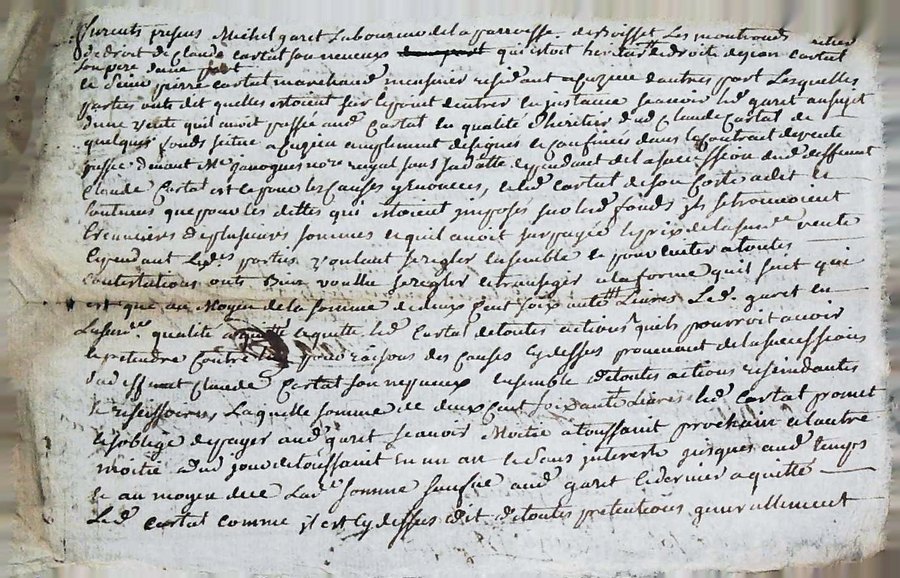 furents presens Michel garet Laboureur de la parroisse de Boisset Les montrond heritier
de droit de Claude Cartal son neveux qui estoit heritier de droit de jean Cartal
son pere d'une part
Le Sieur pierre Cartal marchand menusier residant a d'autres part Lesquelles
parties onts dit quelles estoient sur le point dentrer En justance scavoir led garet au sujet
d'une vente quil auroit passée aud Cartal En qualité d'heritier dud Claude Cartal de
quelques fonds situé a amplement designés et Confinés dans le Contrat de vente
passée devant Me nore royal sous sa datte Dependant de la successsion dud deffunt
Claude Cartal est ce pour les Causes y enoncees, et led Cartal de son Coste a dit et
soutenus que pour les dettes qui estoient imposés sur led fonds ils se trouvoient
de plusieures sommes et quil auroit surpayée le prix de la sus de vente
Cependant Lesd parties voulant se regler Ensemble et pour Eviter a toutes
Contestations onts Bien voullu se regler et transiger a la forme quil suit qui
est que au Moyen de la somme de deux Cent soixante Livres Led. garet En
La susd qualité a quitté et quitte led Cartal de toutes actions quils pourroit avoir
et pretendre Contre pour raisons des Causes cy dessus provenant de la successions
dud effunt Claude Cartal son nepveux Ensemble de toutes actions residantes
et rescissoires Laquelle somme de deux Cent soixante Livres led Cartal promet
et soblige de payer aud garet scavoir Moitié a toussaint prochain et lautre
moitié dud jour de toussaint En un an et sans interests jusques aud temps
Et au moyen de Lad somme aud garet ce dernier a quitte
Led Cartal comme il est Cy dessus dit de toutes pretentions generallement